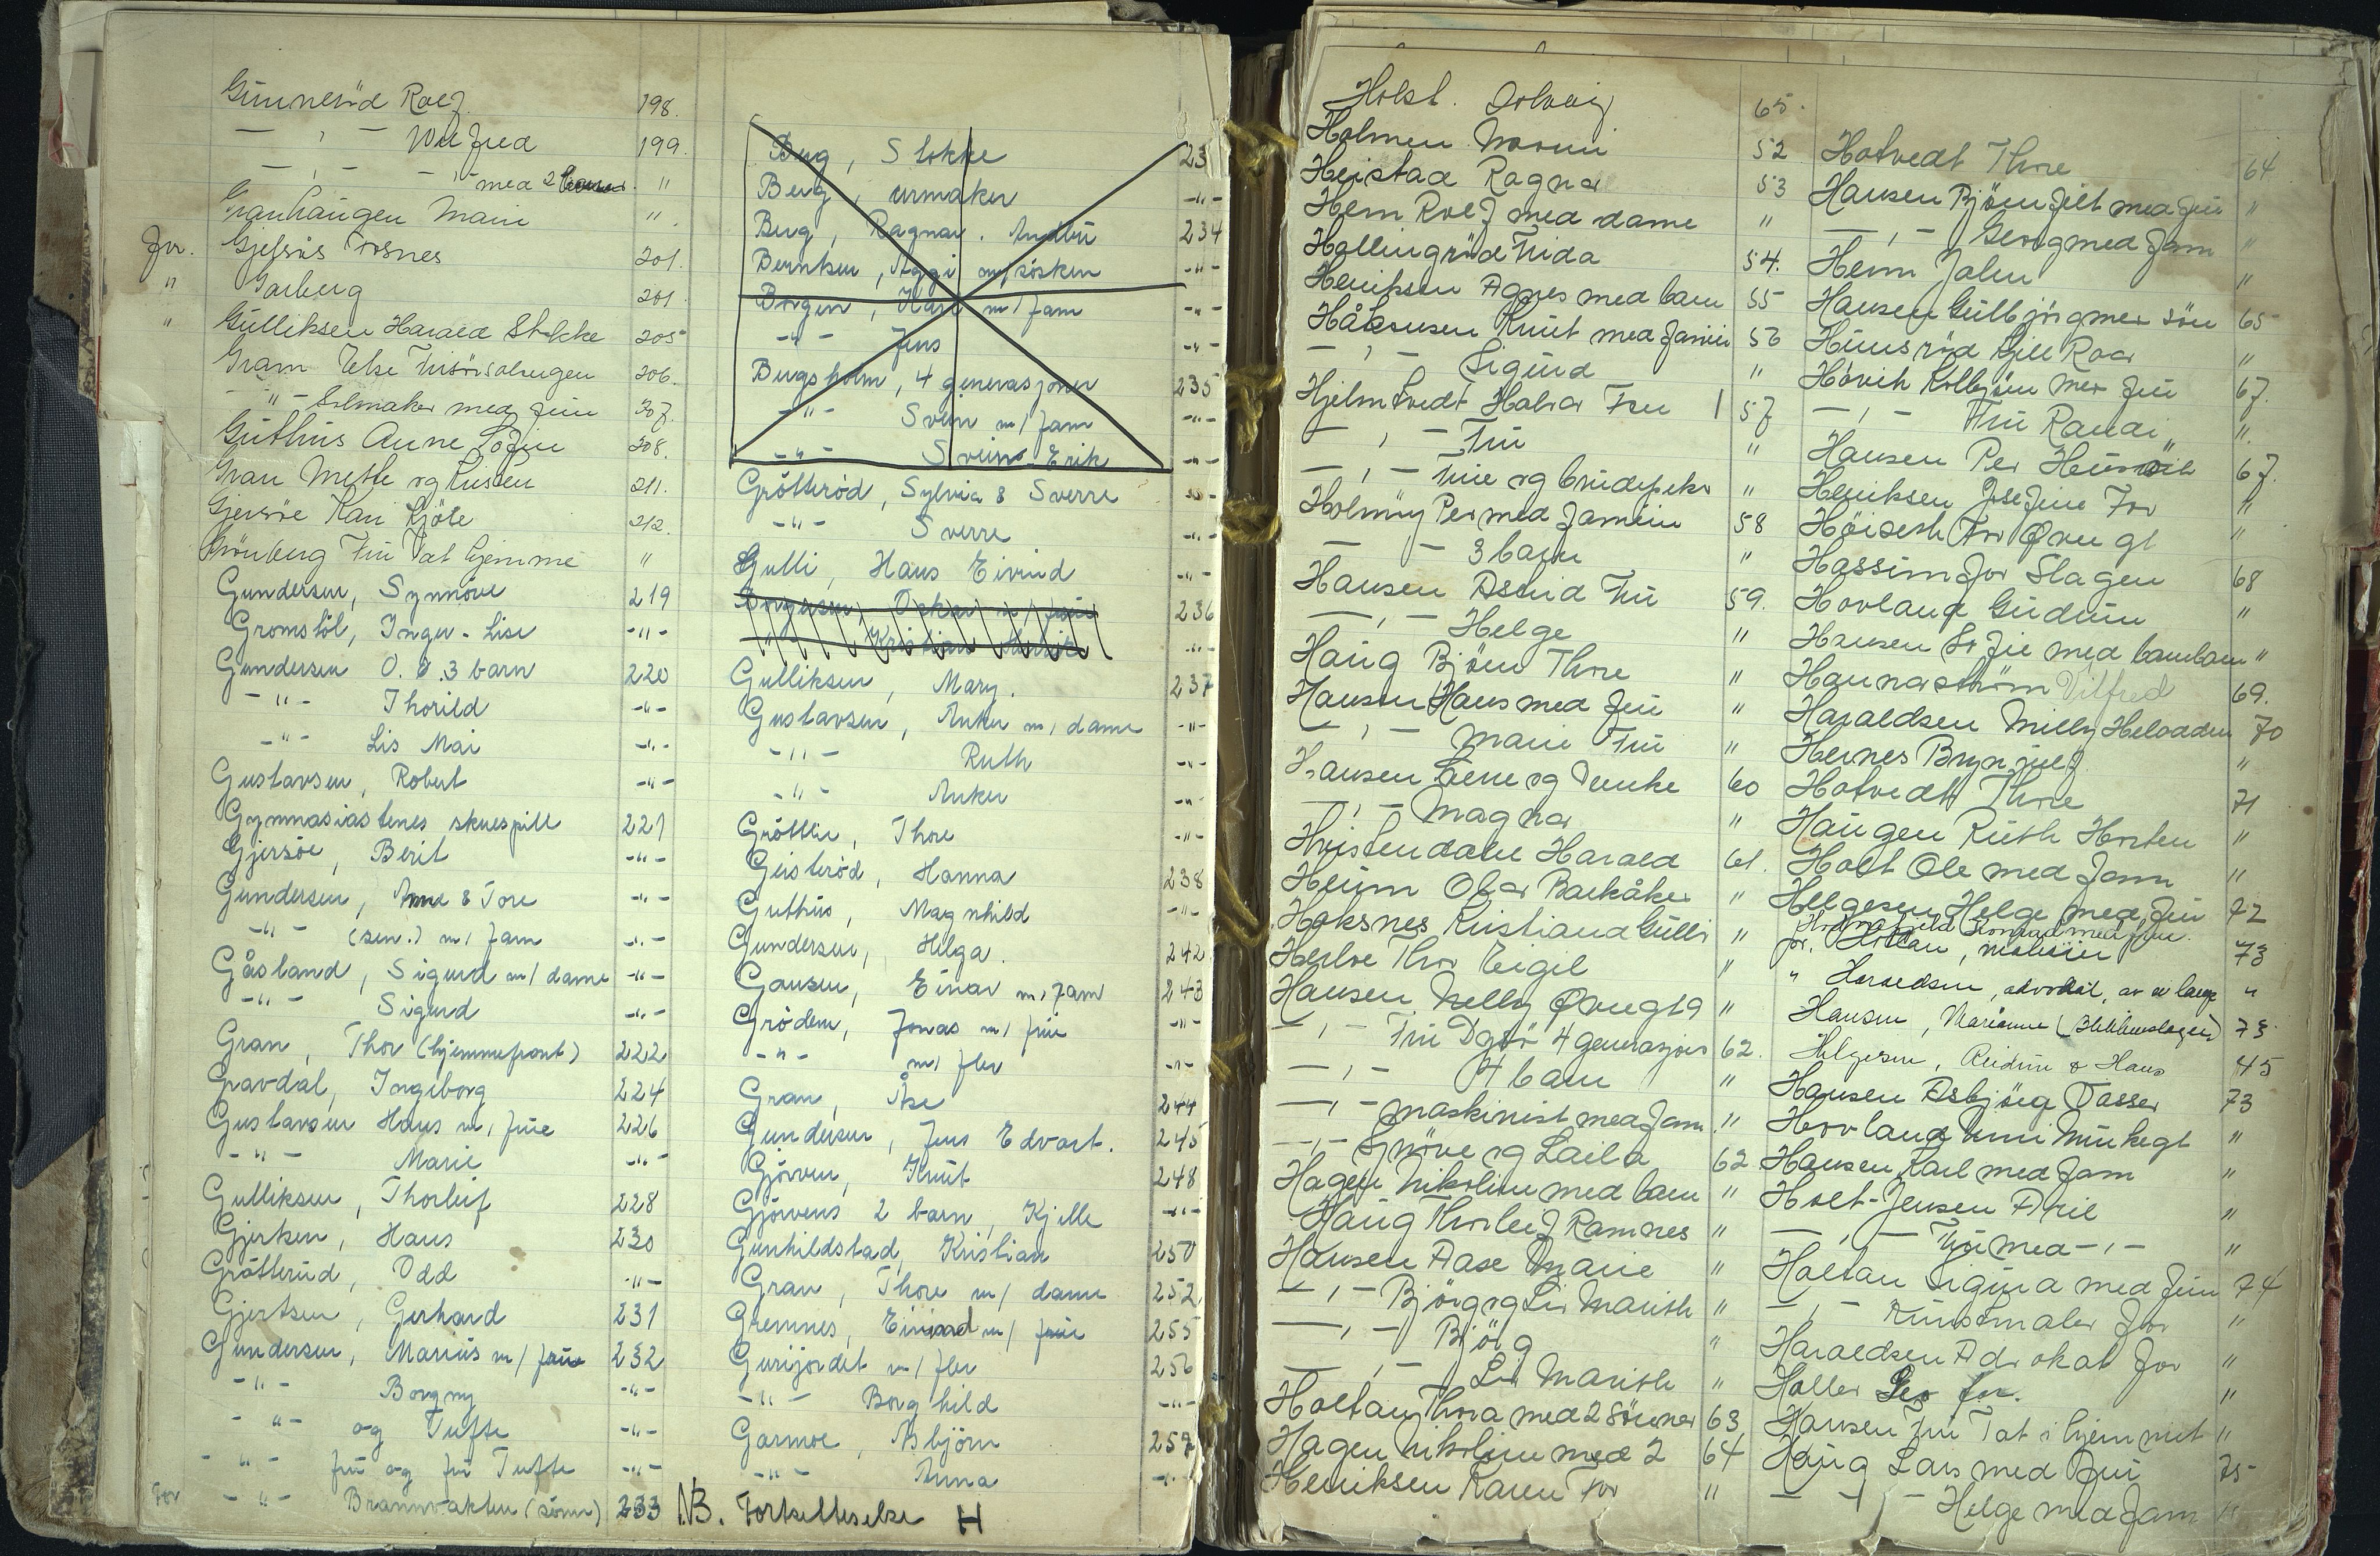 Gunnerød Rolf 198.
— , — Wilfred 199.
— , — — , — med 2 "
Granhaugen Marie "
for. Gjelsås Fosnes 201.
" Garberg 201.
" Gulliksen Harald Stokke 205
Gram Else 206.
— " — Solmaker med fru 207.
Guthus Anne Sofie 208.
Gran Mette og Kristen 211.
Gjersøe Kari Kjøle 212.
Grønberg Fru Tat hjemme "
Gundersen, Synnøve 219
Gromstöl, Inger-Lise -"-
Gundersen O. E. 3 barn 220
-"- Thorild -"-
-"- Lis Mai -"-
Gustavsen, Robert -"-
Gymnasiastenes skuespill 221
Gjersøe, Berit -"-
Gundersen, Anne & Tore -"-
-"- (sen.) m/ fam -"-
Gåsland, Sigurd m/ dame -"-
-"- Sigurd -"-
Gran, Thor (hjemmefront) 222
Gravdal, Ingeborg 224
Gustavsen Hans m/ frue 226
-"- Marie -"-
Gulliksen, Thorleif 228
Gjertsen, Hans 230
Gråtterud, Odd -"-
Gjertsen, Gerhard 231
Gundersen, Marius m/ frue 232
-"- Borgny -"-
-"- og Tufte -"-
-"- fru og fru Tufte -"-
For -"- Brannvakten (sønn) 233
Berg, Stokke 23
Berg, urmaker -"-
Berg, Ragnar. Andebu 234
Berntsen, Aggi m/ søsken -"-
Borgen, Kari m/ fam -"-
-"- Jens -"-
Bergsholm, 4 generasjoner 235
-"- Svein m/ fam -"-
-"- Svein-Erik -"-
Gröttteröd, Sylvia & Sverre -"-
-"- Sverre -"-
Gulli, Hans Eivind -"-
Borgersen, Oskar m/ frue 236
-"- Kristian -"-
Gulliksen, Mary. 237
Gustavsen, Anker m/ dame -"-
-"- Ruth -"-
-"- Anker -"-
Gröttlie, Thore -"-
Geisteröd, Hanna 238
Guthus, Magnhild -"-
Gundersen, Helga. 242
Gausen, Einar m/ fam 243
Grödem, Jonas m/ frue -"-
-"- m/ fler -"-
Gran, Åse 244
Gundersen, Jens Edvart. 245
Gjörven, Knut 248
Gjörvens 2 barn, Kjelle -"-
Gunhildstad, Kristian 250
Gran, Thore m/ dame 252
Gremnes, Einard m/ frue 255
Gurijordet m/ fler 256
-"- Borghild -"-
Garmoe, Asbjörn 257
-"- Anna -"-
NB. Fortsettelse H
Holst. Solveig 65.
Holmen Normi 52
Heistad Ragnar 53
Hem Rolf med dame "
Hellingrød Frida 54.
Henriksen Agnes med barn 55
Håkonsen Knut med familie 56
— , — Sigurd "
Hjelmtvedt Halvor Fru 57
— , — Fru "
— , — Frue og brudepike "
Holmøy Per med familie 58
— — 3 barn "
Hansen Astrid Fru 59.
— , — Helge "
Haug Bjørn Thore "
Hansen Hans med fru "
— , — Marie Fru "
Hansen Lene og Wenke 60
— , — Magnar "
Hvistendahl Harald 61.
Heum Olav Barkåker "
Haksnes Kristiane Gulli "
Herloe Thor Eigil "
Hansen Nelly Øvregt 9 "
— , — Fru 4 generasjoner 62.
— , — 4 barn "
— , — maskinist med fam. "
— , — Synøve og Laila 62
Hagen Nikoline med barn "
Haug Thorleif Ramnes "
Hansen Aase Marie "
— , — Bjørg og Liv Marith "
— , — Bjørg "
— , — Liv Marith "
Holtan Thora med 2 sønner 63
Hagen Nikoline med 2 64
Henriksen Karen For "
Hotvedt Thore 64
Hansen Bjørn Filt med fru "
— , — Georg med fam "
Hem John "
Hansen Gullbjørg med søn 65
Huusrød Kjell Roar "
Håvik Kolbjørn med fru 67.
— , — Fru Randi ".
Hansen Per Heinrich 67.
Henriksen Josefine For "
Høiseth For Øvregt "
Hassum for Slagen 68
Hovland Gudrun "
Hansen Sofie med barnbarn "
Hannaström Vilfred 69.
Haraldsen Milly Helvadden 70
Hernes Brynjulf "
Hotvedt Thore 71
Haugen Ruth Horten "
Holt Ole med fam "
Helgesen Helge med fru 72
Konrad med fru.
for. Holtan, malerier 73
" Haraldsen, advokat, av en laug "
Hansen, Marianne 73
Helgesen, Reidun & Hans 45
Hansen Asbjørg Tasser 73
Hovland Unni Munkegt "
Hansen Karl med fam "
Holt-Jensen Arild "
— , — Fru med — , — "
Holtan Sigurd med fru 74
— , — Kunstmaler for "
Haraldsen Advokat for "
Holler Leo for. "
Hansen Fru Tat i hjemmet "
Haug Lars med fru 75
— — Helge med fam "